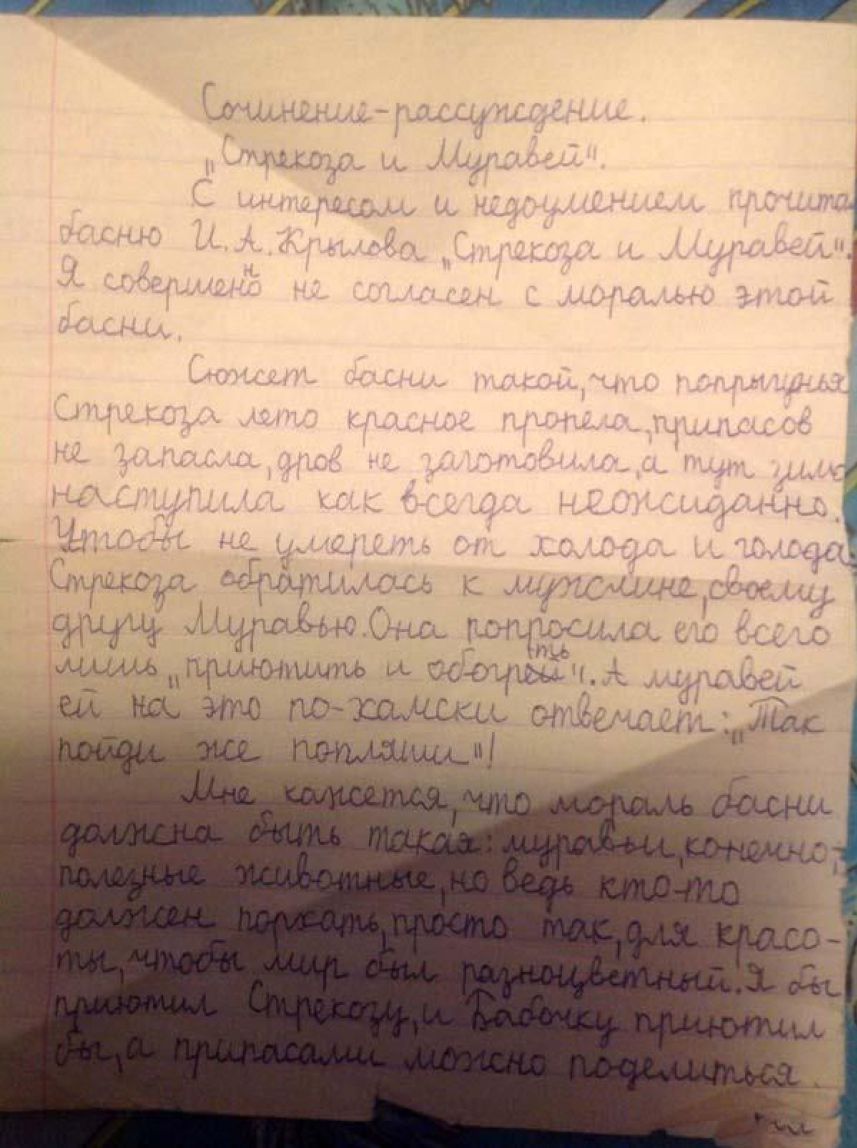 Сочинение-рассуждение.
„Стрекоза и Муравей".
С интересом и недоумением прочита
басню И.А.Крылова „Стрекоза и Муравей".
Я совершенно не согласен с моралью этой
басни.
Сюжет басни такой, что попрыгунья
Стрекоза лето красное пропела, припасов
не запасла, дров не заготовила, а тут зима
наступила как всегда неожиданно.
Чтобы не умереть от холода и голода,
Стрекоза обратилась к мужчине, своему
другу Муравью. Она попросила его всего
лишь „приютить и обогреть". А муравей
ей на это по-хамски отвечает: „Так
пойди же попляши"!
Мне кажется, что мораль басни
должна быть такая: муравьи, конечно,
полезные животные, но ведь кто-то
должен порхать, просто так, для красо-
ты, чтобы мир был разноцветный. Я бы
приютил Стрекозу, и Бабочку приютил
бы, а припасами можно поделиться.